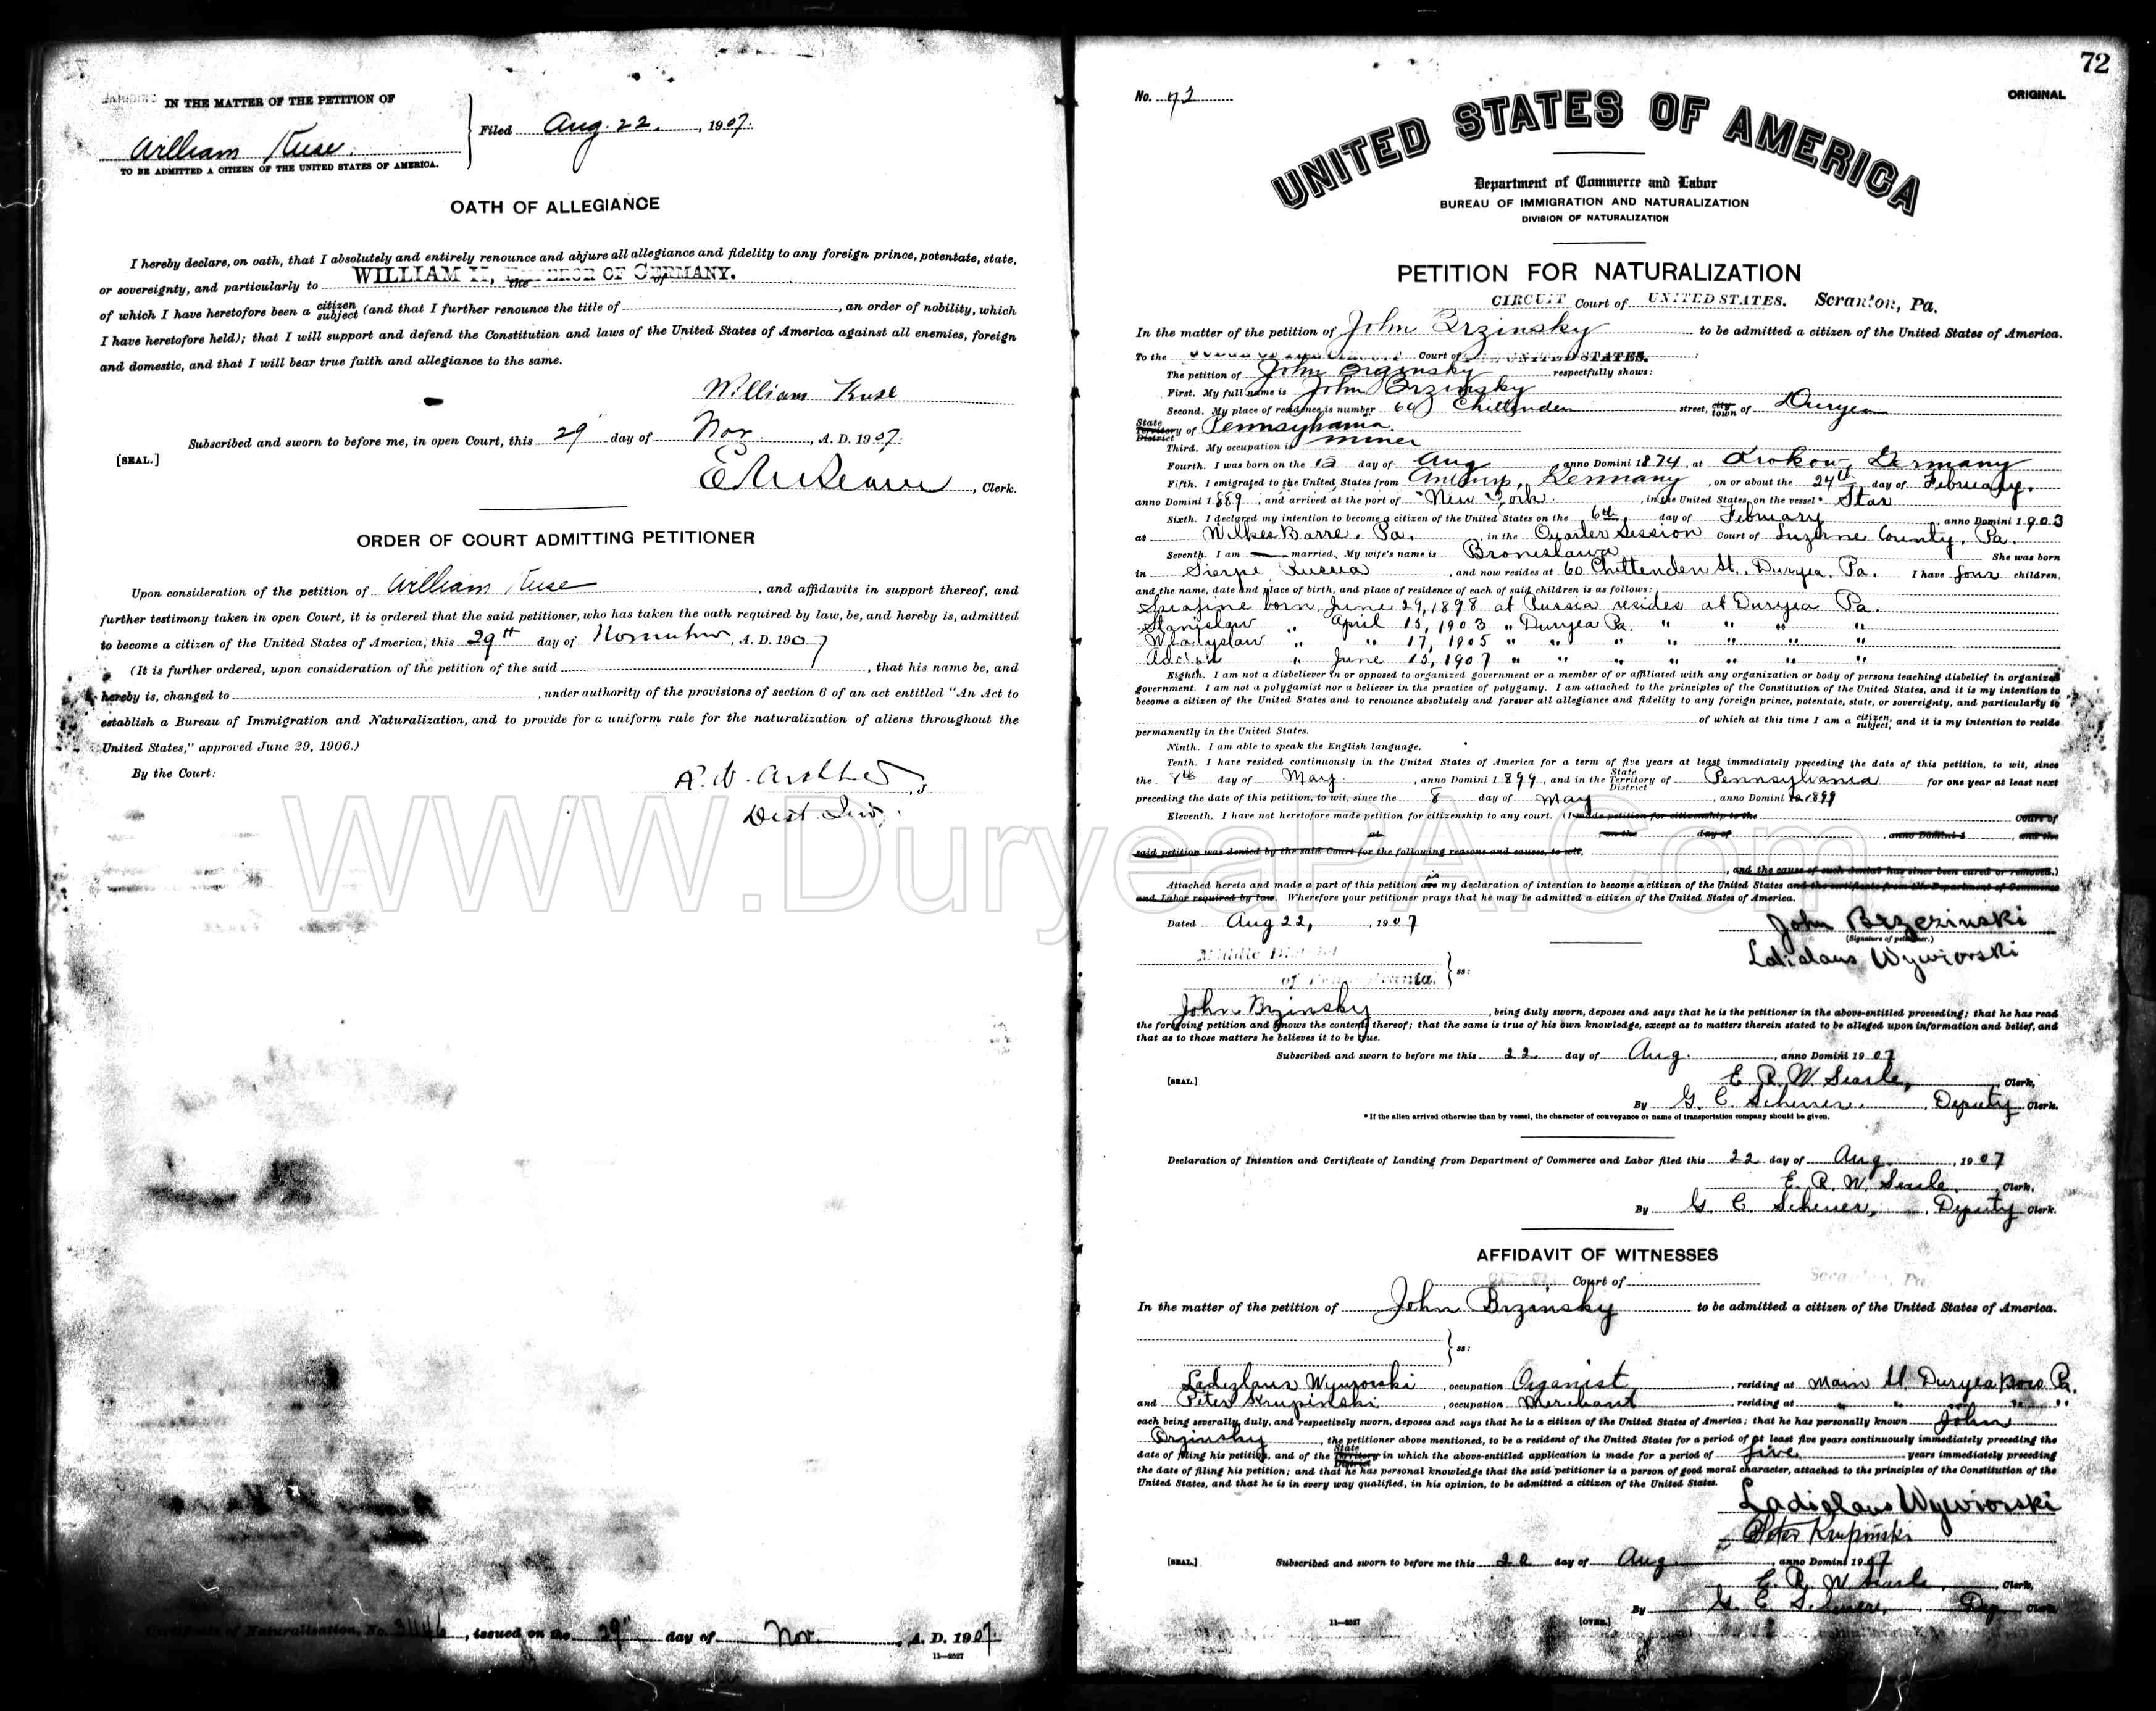 IN THE MATTER OF THE PETITION OF
William Kuse.
TO BE ADMITTED A CITIZEN OF THE UNITED STATES OF AMERICA.
Filed Aug. 22, 1907.
OATH OF ALLEGIANCE
I hereby declare, on oath, that I absolutely and entirely renounce and abjure all allegiance and fidelity to any foreign prince, potentate, state,
or sovereignty, and particularly to WILLIAM II, EMPEROR OF GERMANY. the of
of which I have heretofore been a citizen subject (and that I further renounce the title of , an order of nobility, which
I have heretofore held); that I will support and defend the Constitution and laws of the United States of America against all enemies, foreign
and domestic, and that I will bear true faith and allegiance to the same.
William Kuse
Subscribed and sworn to before me, in open Court, this 29 day of Nov , A. D. 1907.
[SEAL.]
, Clerk.
ORDER OF COURT ADMITTING PETITIONER
Upon consideration of the petition of William Kuse , and affidavits in support thereof, and
further testimony taken in open Court, it is ordered that the said petitioner, who has taken the oath required by law, be, and hereby is, admitted
to become a citizen of the United States of America, this 29th day of November, A. D. 1907
(It is further ordered, upon consideration of the petition of the said , that his name be, and
hereby is, changed to , under authority of the provisions of section 6 of an act entitled "An Act to
establish a Bureau of Immigration and Naturalization, and to provide for a uniform rule for the naturalization of aliens throughout the
United States," approved June 29, 1906.)
By the Court:
Certificate of Naturalization, No. , issued on the 29" day of Nov. , A. D. 1907.
11—2527
72
No. 72
ORIGINAL
UNITED STATES OF AMERICA
Department of Commerce and Labor
BUREAU OF IMMIGRATION AND NATURALIZATION
DIVISION OF NATURALIZATION
PETITION FOR NATURALIZATION
CIRCUIT Court of UNITED STATES. Scranton, Pa.
In the matter of the petition of John Brzinsky to be admitted a citizen of the United States of America.
To the Court of UNITED STATES. :
The petition of John Brzinsky respectfully shows:
First. My full name is John Brzinsky
Second. My place of residence is number 60 Chittenden street, city town of Duryea
State Territory District of Pennsylvania.
Third. My occupation is miner
Fourth. I was born on the 15 day of Aug , anno Domini 1874, at Krokow, Germany
Fifth. I emigrated to the United States from Antwerp, Germany , on or about the 24th day of February,
anno Domini 1889, and arrived at the port of New York. , in the United States, on the vessel* Star
Sixth. I declared my intention to become a citizen of the United States on the 6th day of February , anno Domini 1903
at Wilkes Barre, Pa. , in the Quarter Session Court of Luzerne County, Pa.
Seventh. I am married. My wife's name is Bronislawa She was born
in Sierpe Russia , and now resides at 60 Chittenden St., Duryea, Pa. I have four children,
and the name, date and place of birth, and place of residence of each of said children is as follows:
Serafine born June 29, 1898 at Russia resides at Duryea Pa.
Stanislaw " April 15, 1903 " Duryea Pa. " " " "
Wladyslaw " " 17, 1905 " " " " " " "
" June 15, 1907 " " " " " " "
Eighth. I am not a disbeliever in or opposed to organized government or a member of or affiliated with any organization or body of persons teaching disbelief in organized
government. I am not a polygamist nor a believer in the practice of polygamy. I am attached to the principles of the Constitution of the United States, and it is my intention to
become a citizen of the United States and to renounce absolutely and forever all allegiance and fidelity to any foreign prince, potentate, state, or sovereignty, and particularly to
of which at this time I am a citizen subject, and it is my intention to reside
permanently in the United States.
Ninth. I am able to speak the English language.
Tenth. I have resided continuously in the United States of America for a term of five years at least immediately preceding the date of this petition, to wit, since
the 8th day of May , anno Domini 1899, and in the State Territory District of Pennsylvania for one year at least next
preceding the date of this petition, to wit, since the 8 day of May , anno Domini 1899
Eleventh. I have not heretofore made petition for citizenship to any court. (I made petition for citizenship to the Court of
at on the day of , anno Domini 1 , and the
said petition was denied by the said Court for the following reasons and causes, to wit,
, and the cause of such denial has since been cured or removed.)
Attached hereto and made a part of this petition are is my declaration of intention to become a citizen of the United States and the certificate from the Department of Commerce
and Labor required by law. Wherefore your petitioner prays that he may be admitted a citizen of the United States of America.
Dated Aug 22, , 1907
John Brzezinski
(Signature of petitioner.)
Ladislaus Wywiorski
Middle District
of Pennsylvania. ss:
John Brzinsky , being duly sworn, deposes and says that he is the petitioner in the above-entitled proceeding; that he has read
the foregoing petition and knows the contents thereof; that the same is true of his own knowledge, except as to matters therein stated to be alleged upon information and belief, and
that as to those matters he believes it to be true.
Subscribed and sworn to before me this 22 day of Aug. , anno Domini 1907
[SEAL.]
E. R. W. Searle, Clerk,
By G. C. Scheuer, Deputy Clerk.
*If the alien arrived otherwise than by vessel, the character of conveyance or name of transportation company should be given.
Declaration of Intention and Certificate of Landing from Department of Commerce and Labor filed this 22 day of Aug. , 1907
E. R. W. Searle, Clerk,
By G. C. Scheuer, Deputy Clerk.
AFFIDAVIT OF WITNESSES
Court of Scranton, Pa.
In the matter of the petition of John Brzinsky to be admitted a citizen of the United States of America.
ss:
Ladizlaus Wywiorski , occupation Organist , residing at Main St. Duryea Boro Pa.
and Peter Krupinski , occupation Merchant , residing at " " " "
each being severally, duly, and respectively sworn, deposes and says that he is a citizen of the United States of America; that he has personally known John
Brzinsky , the petitioner above mentioned, to be a resident of the United States for a period of at least five years continuously immediately preceding the
date of filing his petition, and of the State Territory District in which the above-entitled application is made for a period of five years immediately preceding
the date of filing his petition; and that he has personal knowledge that the said petitioner is a person of good moral character, attached to the principles of the Constitution of the
United States, and that he is in every way qualified, in his opinion, to be admitted a citizen of the United States.
Ladislaus Wywiorski
Peter Krupinski
[SEAL.] Subscribed and sworn to before me this 22 day of Aug , anno Domini 1907
E. R. W. Searle, Clerk,
By G. C. Scheuer, Dep Clerk.
11—2527 [OVER.]
WWW.DuryeaPA.Com